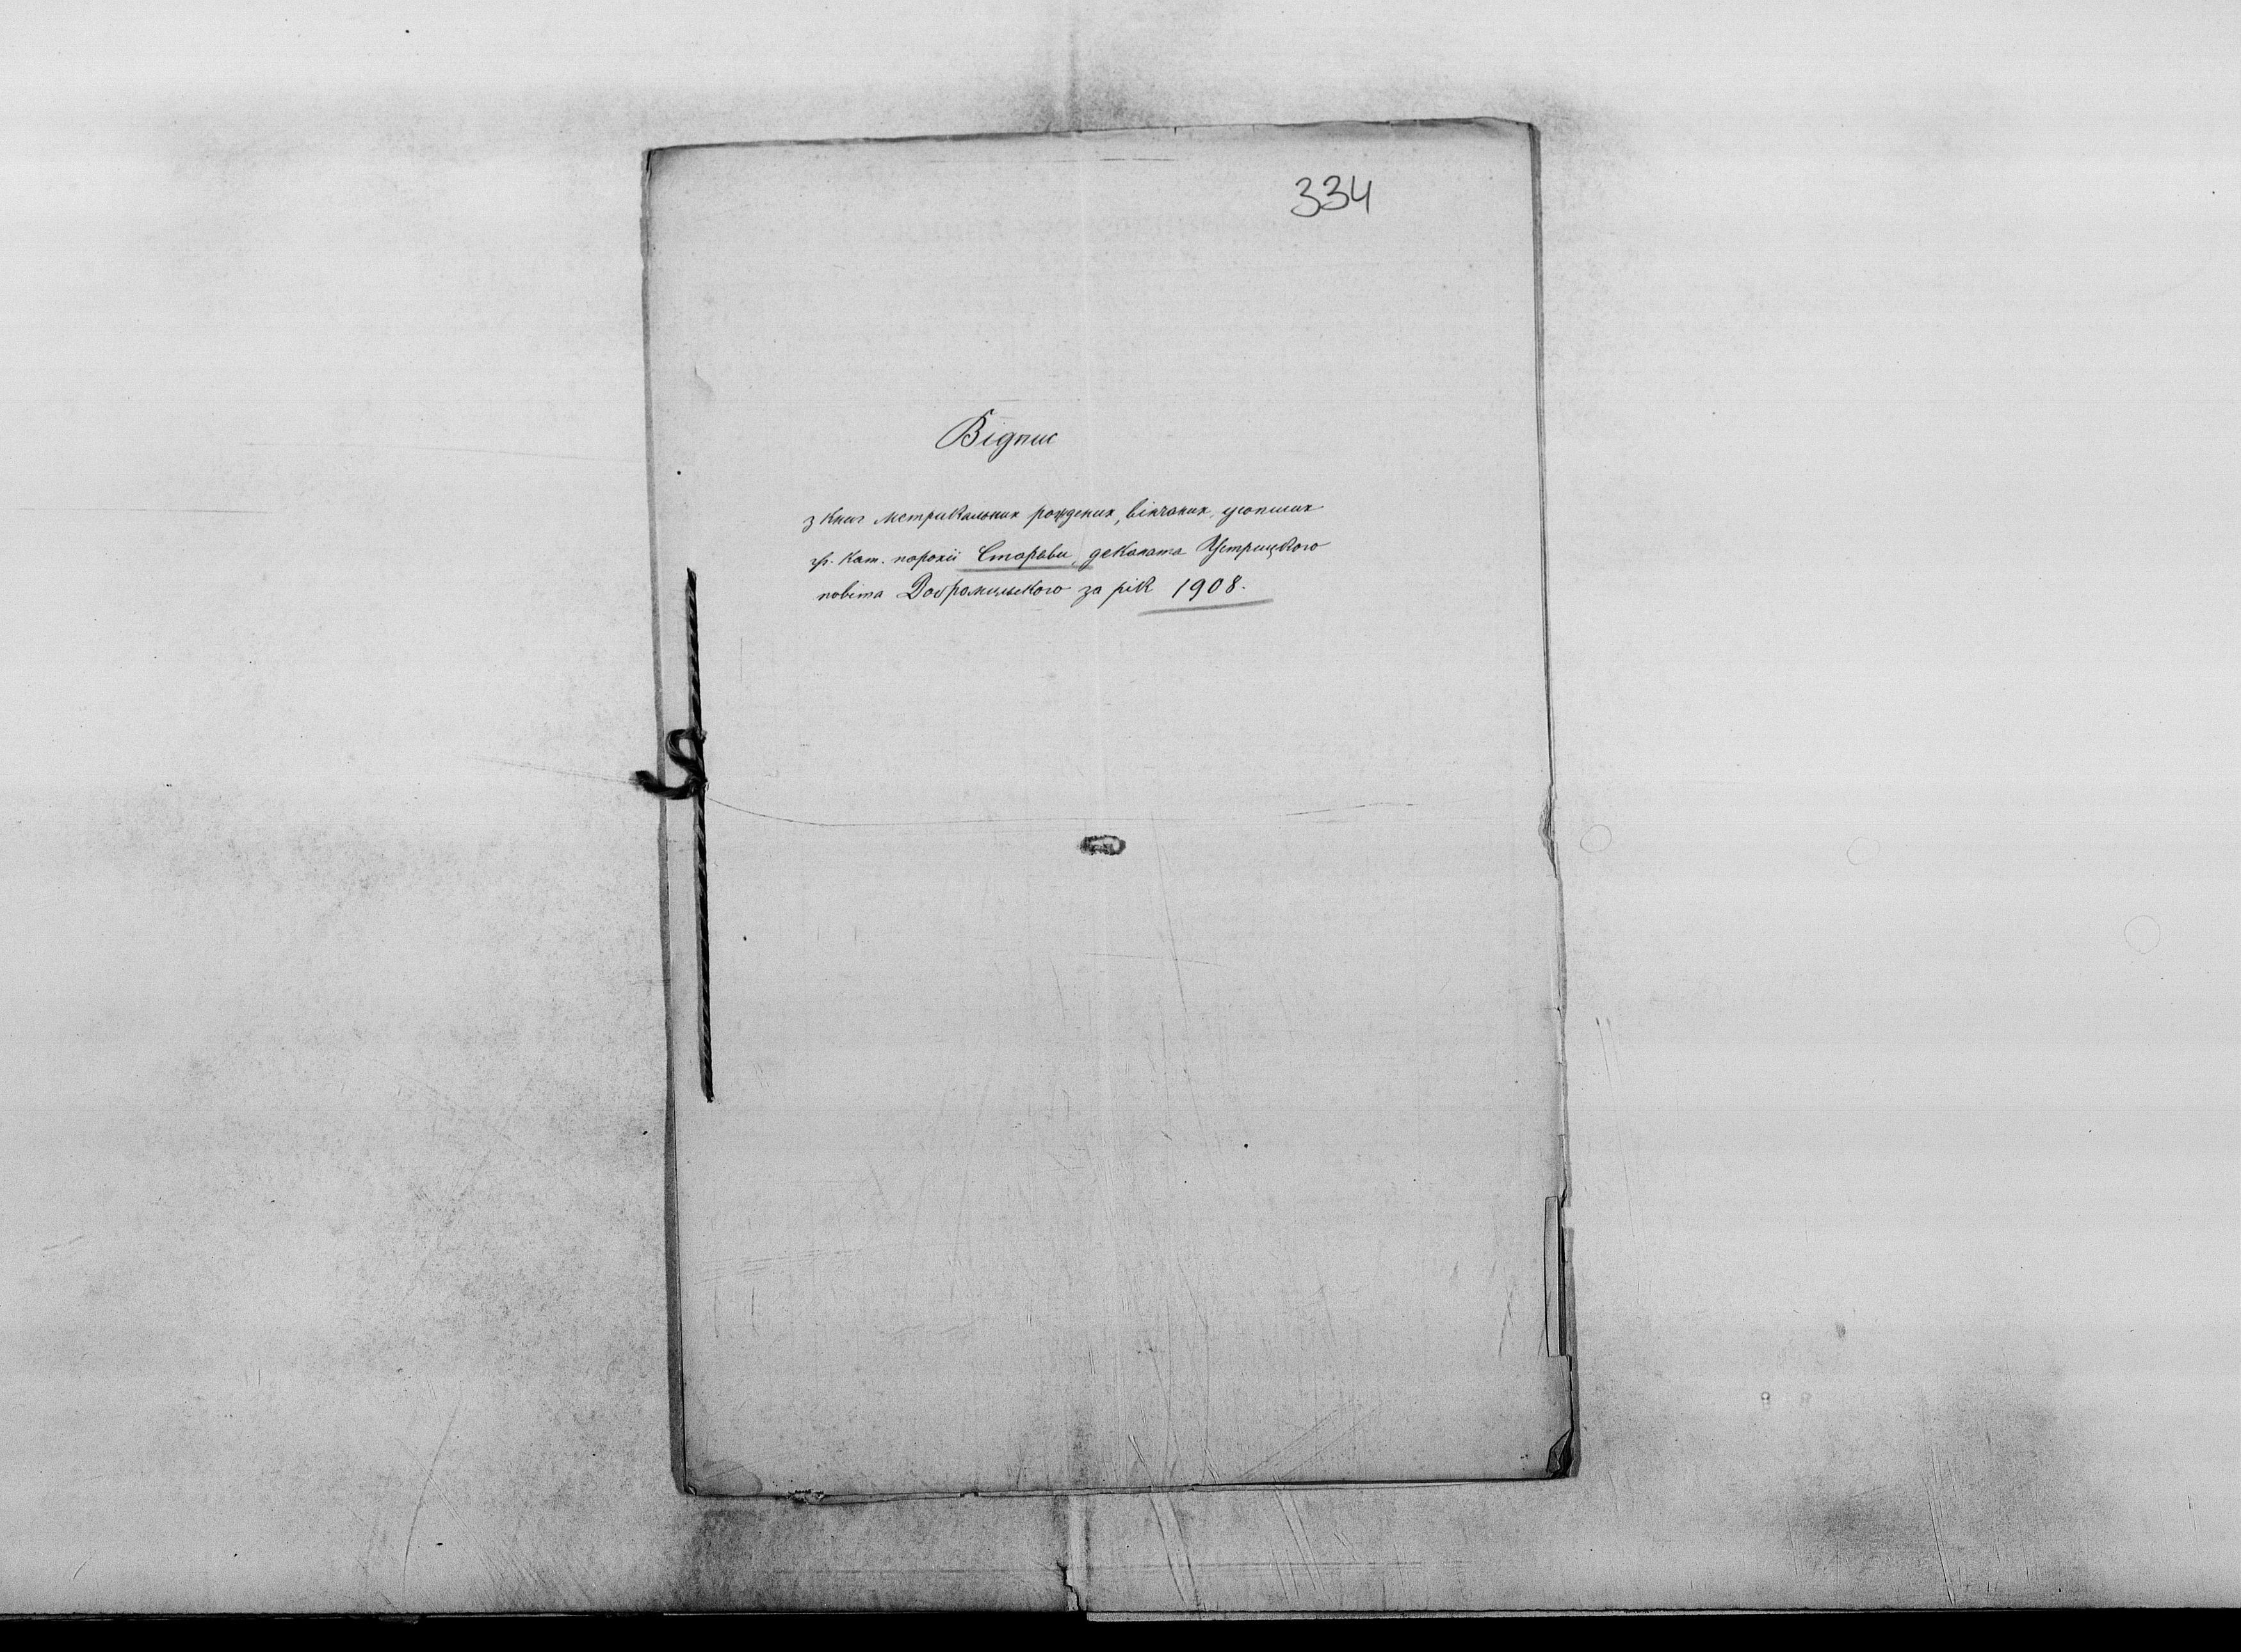 334
Відпис
з книг метрикальних рождених, вінчаних, усопших
гр. кат. парохії Старави, деканата Устрицкого
повіта Добромильского за рік 1908.